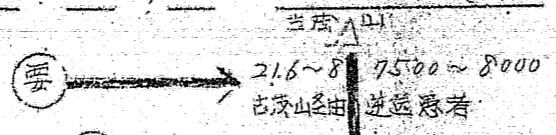 当茂山
要
21.6~8 7500~8000
古茂山経由 逆送患者